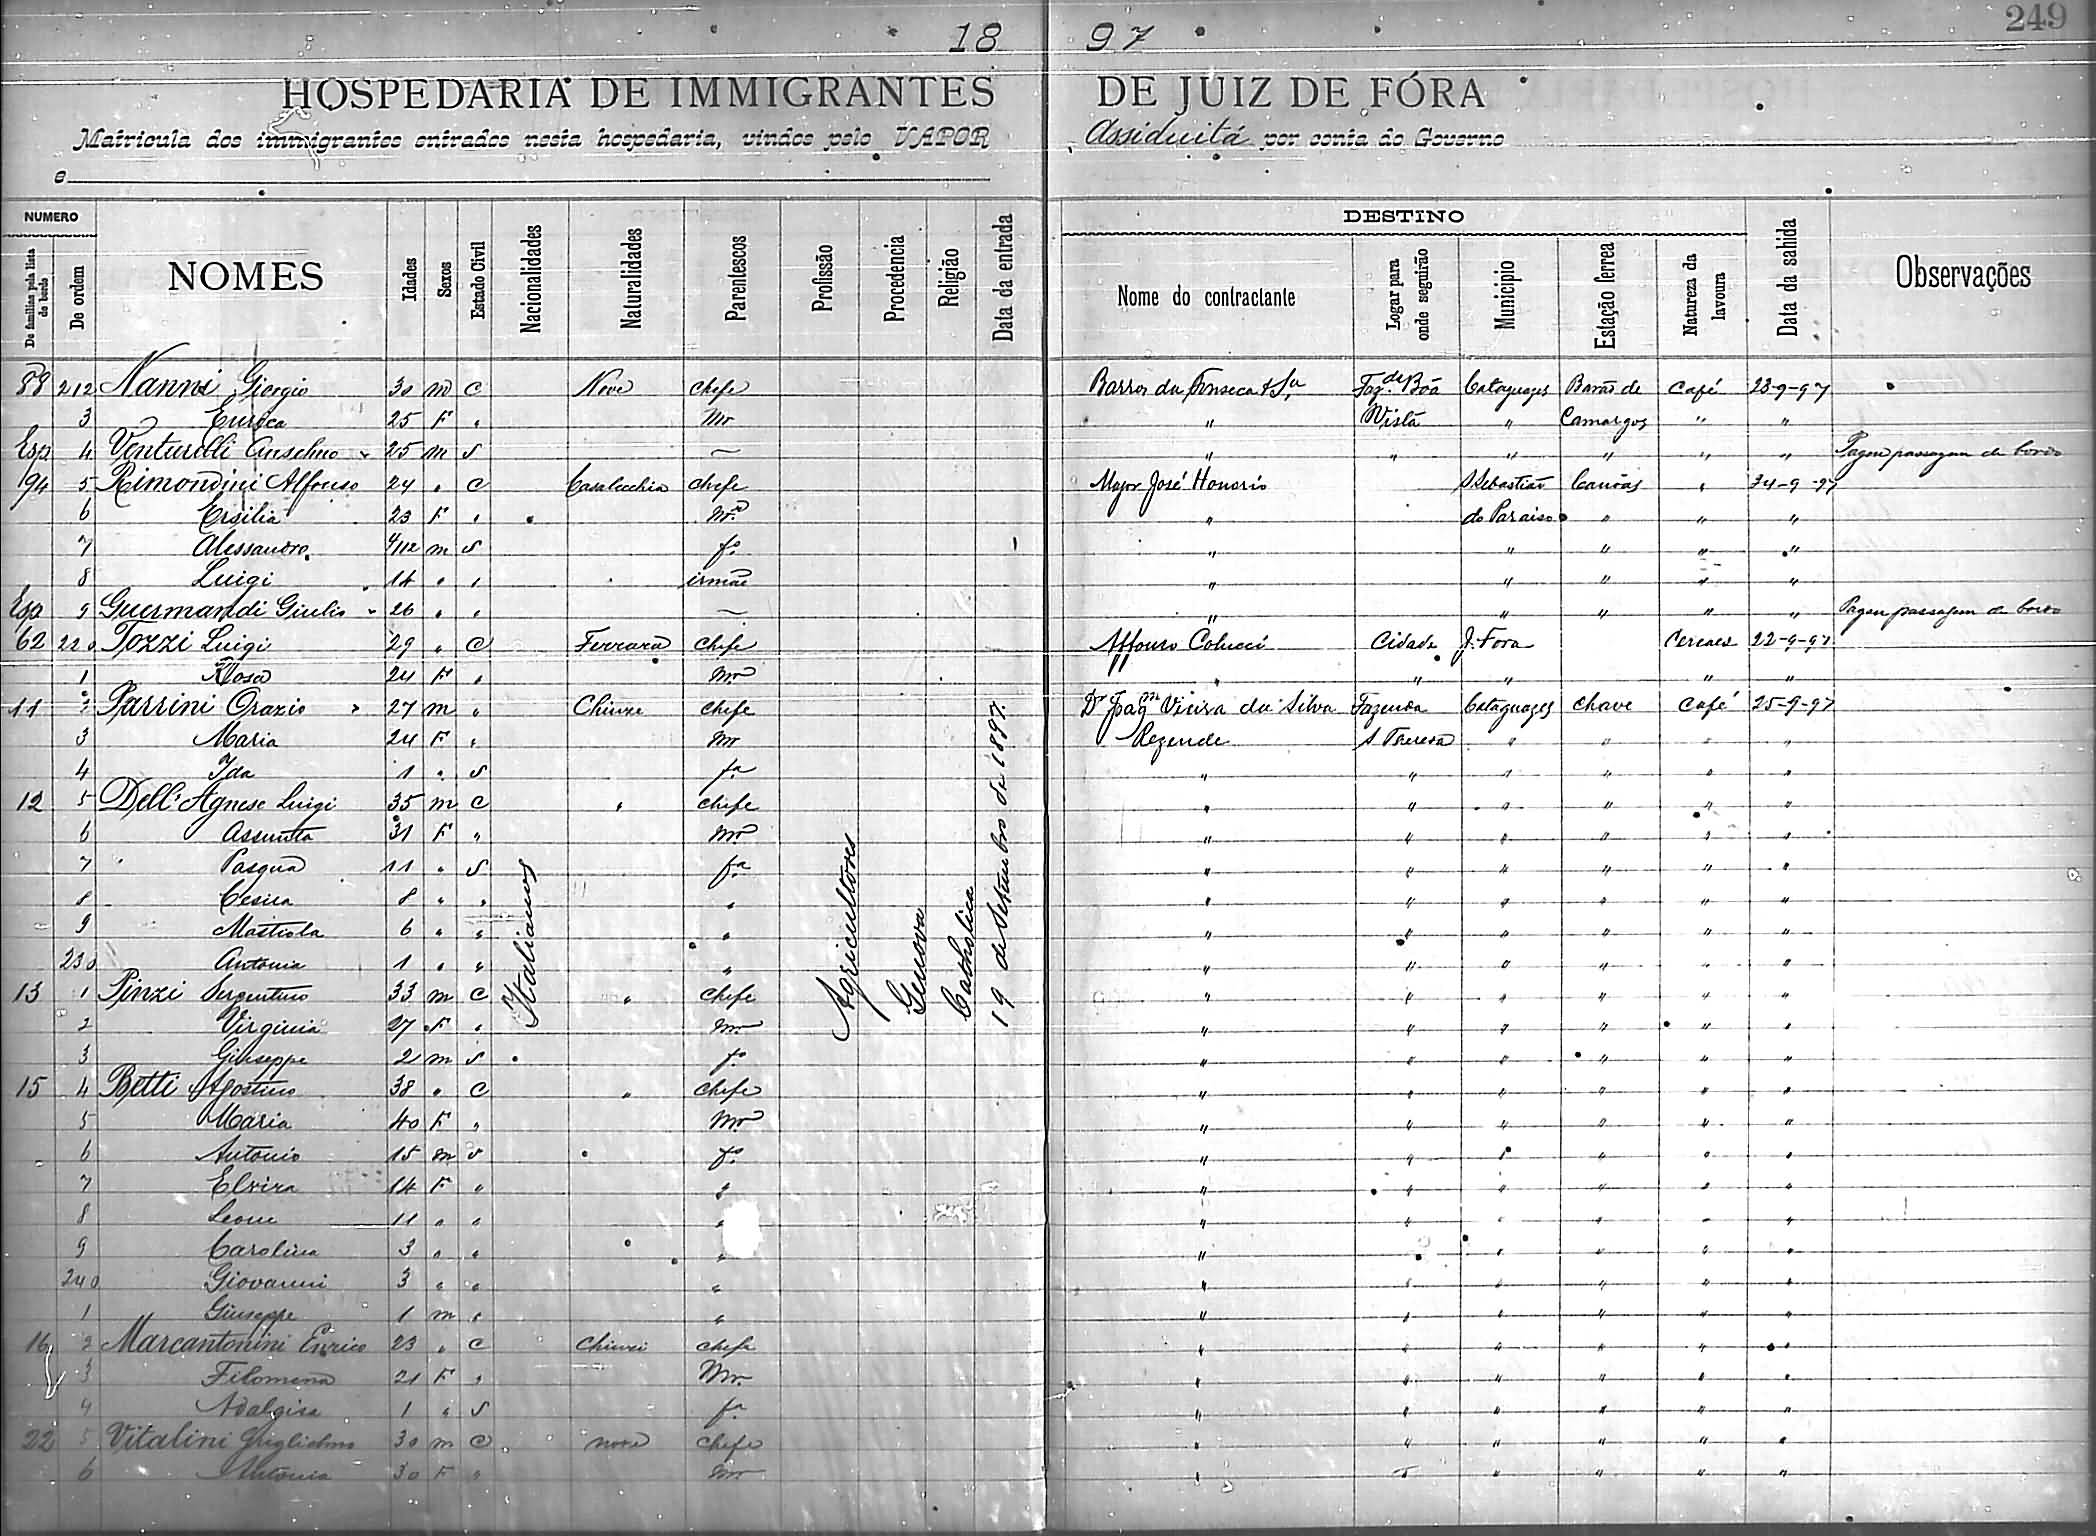 249
18 97
HOSPEDARIA DE IMMIGRANTES DE JUIZ DE FÓRA
Matricula dos immigrantes entrados nesta hospedaria, vindos pelo VAPOR Assiduitá por conta do Governo
e
NUMERO DESTINO
De familias pela lista de bordo De ordem NOMES Idades Sexos Estado Civil Nacionalidades Naturalidades Parentescos Profissão Procedencia Religião Data da entrada Nome do contractante Logar para onde seguirão Municipio Estação ferrea Natureza da lavoura Data da sahida Observações
88 212 Nanni Giorgio 30 m C Nove Chefe Barros da Fonseca & Fazda Boa Cataguazes Barão de Café 23-9-97
3 Eurica 25 F " mr " Vista " Camargos " "
Esp 4 Venturelli Anselmo 25 m S — " " " " " " Pagou passagem de bordo
94 5 Rimondini Alfonso 24 " C Casalecchia Chefe Major José Honorio S Sebastião Canôas " 34-9-97
6 Ersilia 23 F " mr " do Paraiso " " "
7 Alessandro 4/12 m S fo " " " " "
8 Luigi 14 " " irmão " " " " "
Esp 9 Guermandi Giulio 26 " " — " " " " " Pagou passagem de bordo
62 220 Tozzi Luigi 29 " C Ferrara Chefe Affonso Colucci Cidade J. Fora Cereaes 22-9-97
1 Rosa 24 F " mr " " " " "
11 2 Parrini Orazio 27 m " Chiuze Chefe Dr Joaqm Vieira da Silva Fazenda Cataguazes Chave Café 25-9-97
3 Maria 24 F " mr Rezende S Thereza " " " "
4 Ida 1 " S fa " " " " " "
12 5 Dell'Agnese Luigi 35 m C " Chefe " " " " " "
6 Assunta 31 F " mr " " " " " "
7 Pasqua 11 " S fa " " " " " "
8 Cesira 8 " " " " " " " " "
9 Mastiola 6 " " " " " " " " "
230 Antonia 1 " " " " " " " " "
13 1 Pinzi Sergentino 33 m C " Chefe " " " " " "
2 Virginia 27 F " mr " " " " " "
3 Giuseppe 2 m S fo " " " " " "
15 4 Betti Agostino 38 " C " Chefe " " " " " "
5 Maria 40 F " mr " " " " " "
6 Antonio 15 m S fo " " " " " "
7 Elvira 14 F " " " " " " " "
8 Leoni 11 " " " " " " " " "
9 Carolina 3 " " " " " " " " "
240 Giovanni 3 " " " " " " " " "
1 Giuseppe 1 m " " " " " " " "
16 2 Marcantonini Enrico 23 " C Chiuzi Chefe " " " " " "
3 Filomena 21 F " Mr " " " " " "
4 Adalgisa 1 " S fa " " " " " "
22 5 Vitalini Guglielmo 30 m C nove Chefe " " " " " "
6 Antonia 30 F " mr " " " " " "
Italianos
Agricultores
Genova
Catholica
19 de Setembro de 1897